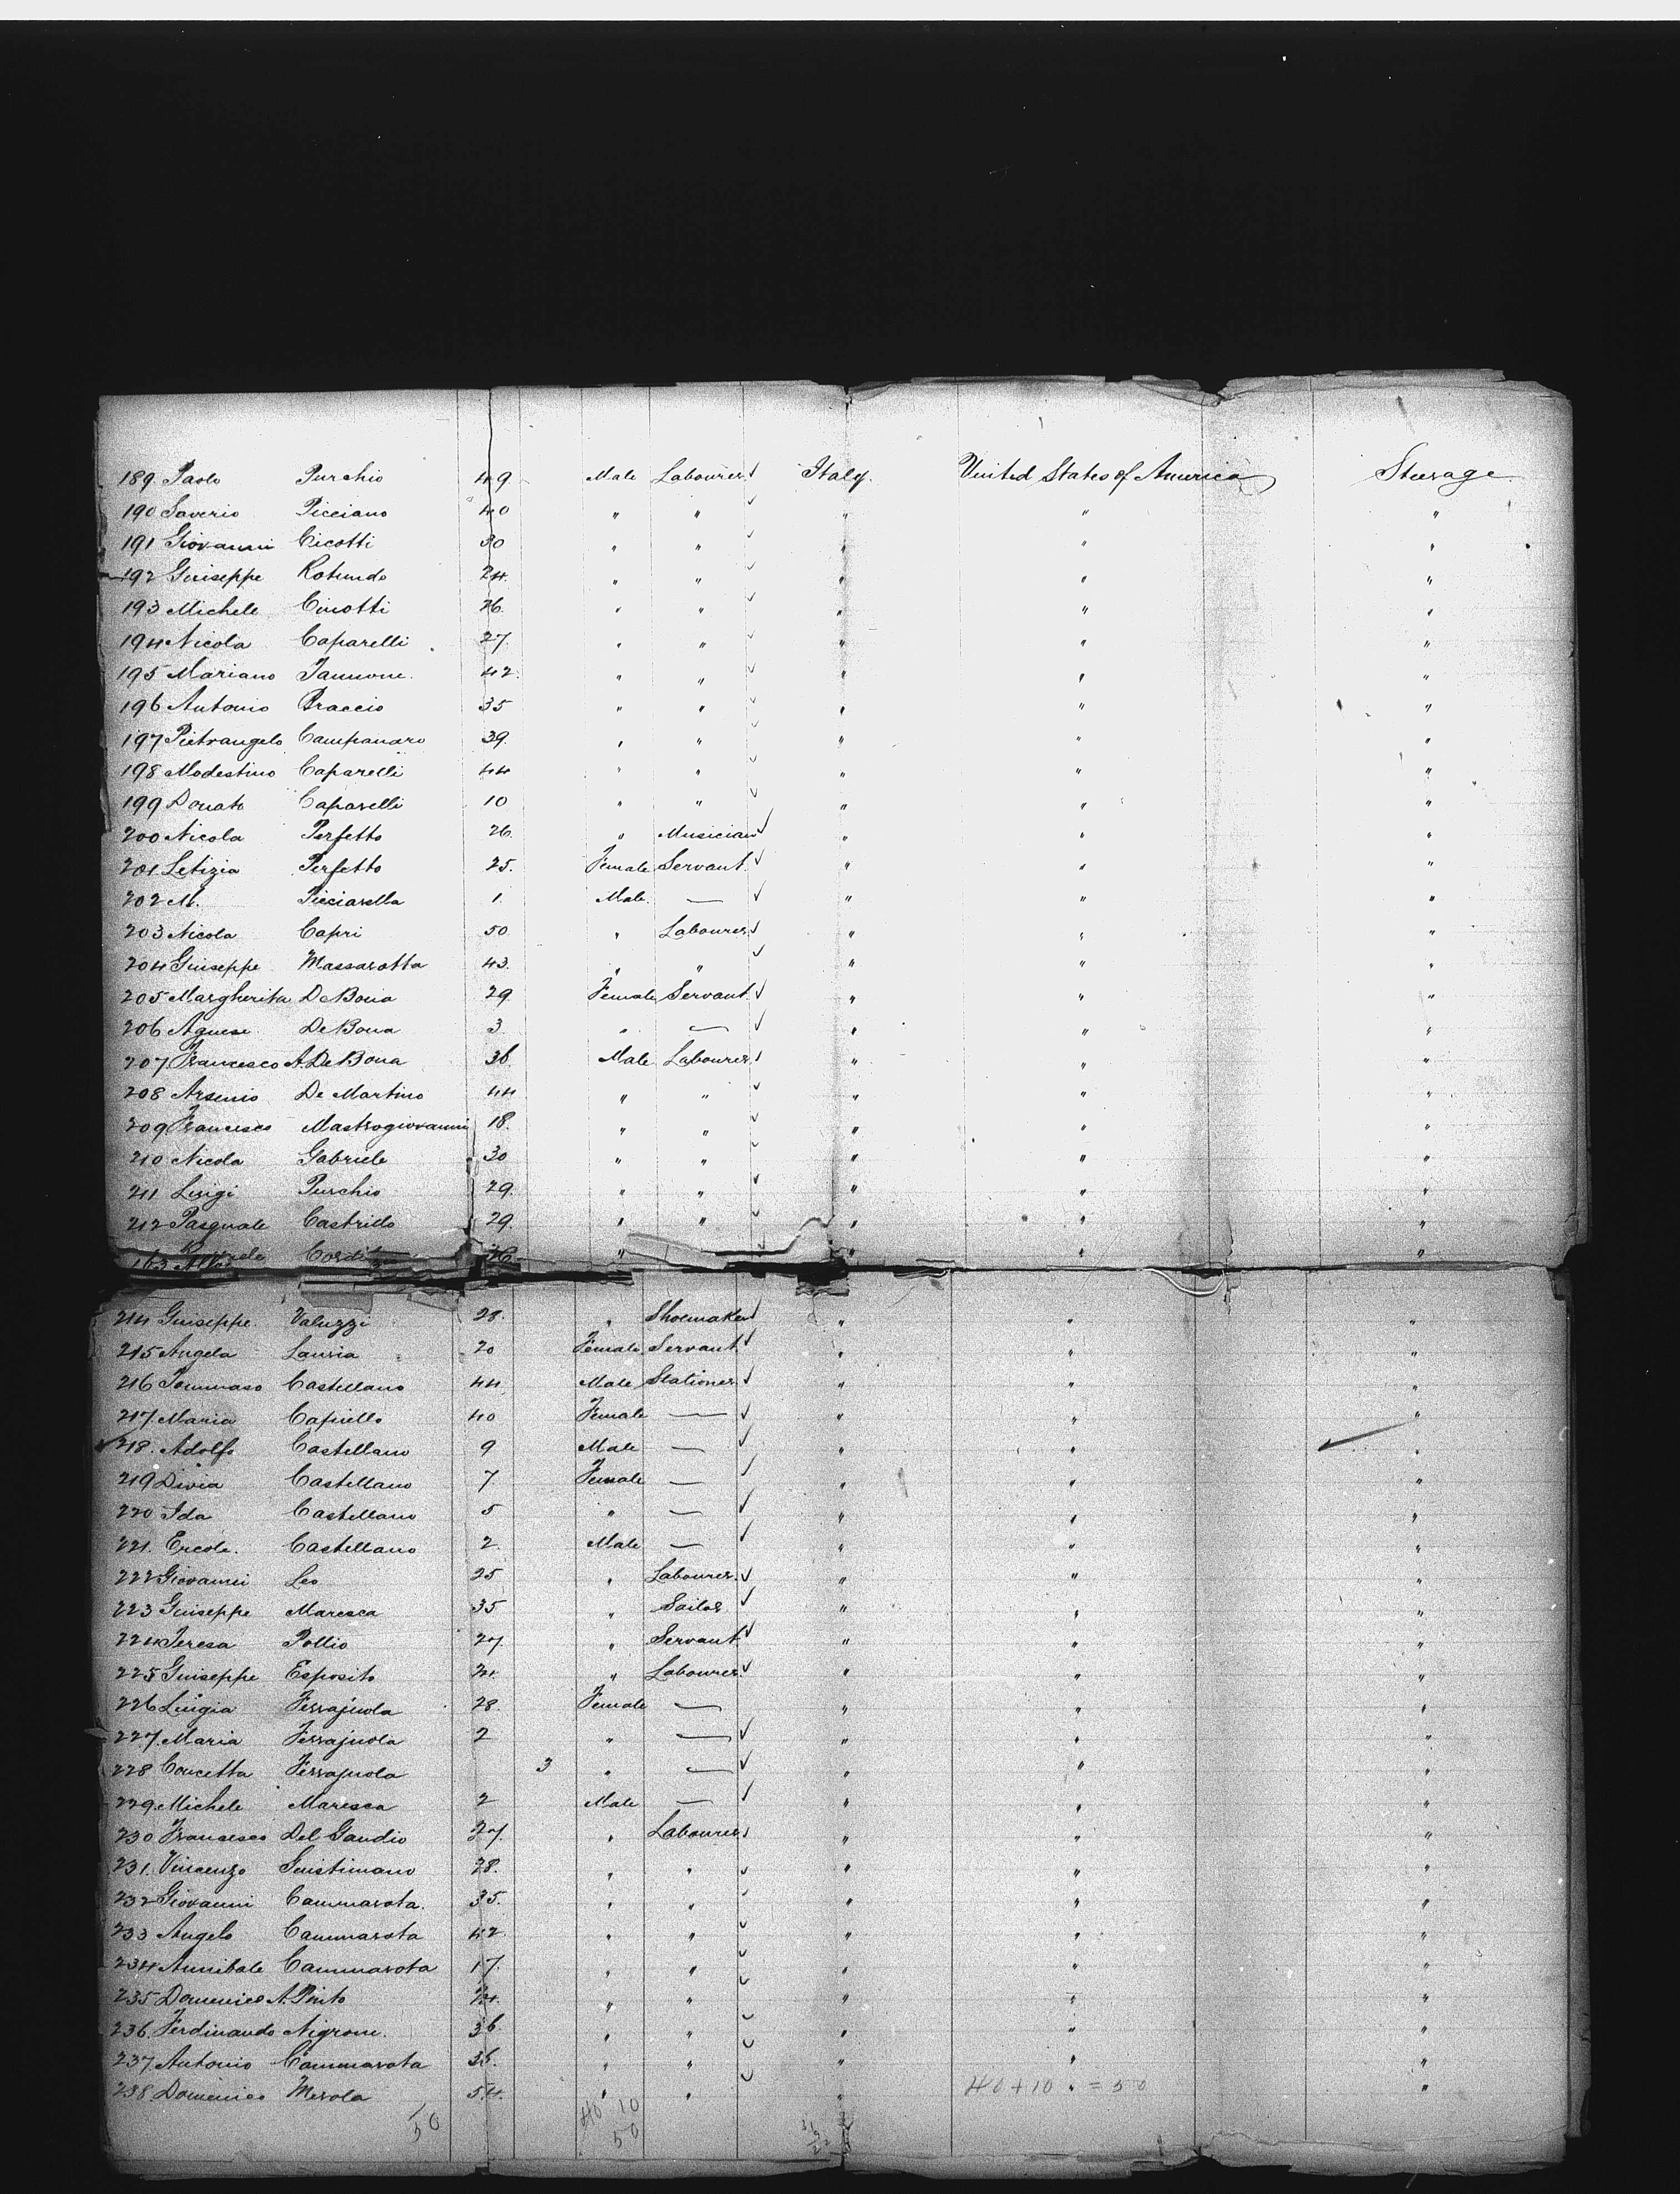 189. Paolo Purchio 49 Male Labourer Italy. United States of America Steerage
190 Saverio Picciano 40 " " " " "
191 Giovanni Cicotti 30 " " " " "
192 Guiseppe Rotundo 24. " " " " "
193 Michele Ciriotti 26. " " " " "
194 Nicola Caparelli 27. " " " " "
195 Mariano Iannone. 42. " " " " "
196 Antonio Braccio 35 " " " " "
197 Pietrangelo Campanaro 39. " " " " "
198 Modestino Caparelli 44 " " " " "
199 Donato Caparelli 10 " " " " "
200 Nicola Perfetto 26. " Musician " " "
201 Letizia Perfetto 25. Female Servant. " " "
202 M. Picciarella 1. Male. — " " "
203 Nicola Capri 50 " Labourer " " "
204 Guiseppe Massarotta 43. " " " " "
205 Margherita De Bona 29 Female Servant. " " "
206 Agnese De Bona 3. " — " " "
207 Francesco A. De Bona 36 Male Labourer. " " "
208 Arsenio De Martino 44 " " " " "
209 Francesco Mastrogiovanni 18. " " " " "
210 Nicola Gabriele 30 " " " " "
211 Luigi Purchio 29. " " " " "
212 Pasquale Castrillo 29. " " " " "
26 " " " "
214 Guiseppe Valuzzi 28. " Shoemaker " " "
215 Angela Lauria 20 Female Servant " " "
216 Tommaso Castellano 44 Male Stationer " " "
217 Maria Capiello 40 Female — " " "
218. Adolfo Castellano 9 Male — " " "
219 Divia Castellano 7. Female — " " "
220 Ida Castellano 5 " — " " "
221. Ercole. Castellano 2. Male — " " "
222 Giovanni Leo 25 " Labourer. " " "
223 Guiseppe Maresca 35 " Sailor " " "
224 Teresa Pollio 27 " Servant " " "
225 Guiseppe Esposito 24. " Labourer " " "
226 Luigia Ferrajuola 28. Female — " " "
227. Maria Ferrajuola 2 " — " " "
228 Concetta Ferrajuola 3 " — " " "
229. Michele Maresca 2 Male — " " "
230 Francesco Del Gaudio 27. " Labourer " " "
231. Vincenzo Guistiniano 28. " " " " "
232 Giovanni Cammarota. 35. " " " " "
233 Angelo Cammarota 42 " " " " "
234 Annibale Cammarota 17. " " " " "
235 Domenico A. Pinto 24. " " " " "
236. Ferdinando Nigrone. 36. " " " " "
237. Antonio Cammarota 35. " " " " "
238. Domenico Merola 54. " " " 40 + 10 " = 50 "
50 40 10
50